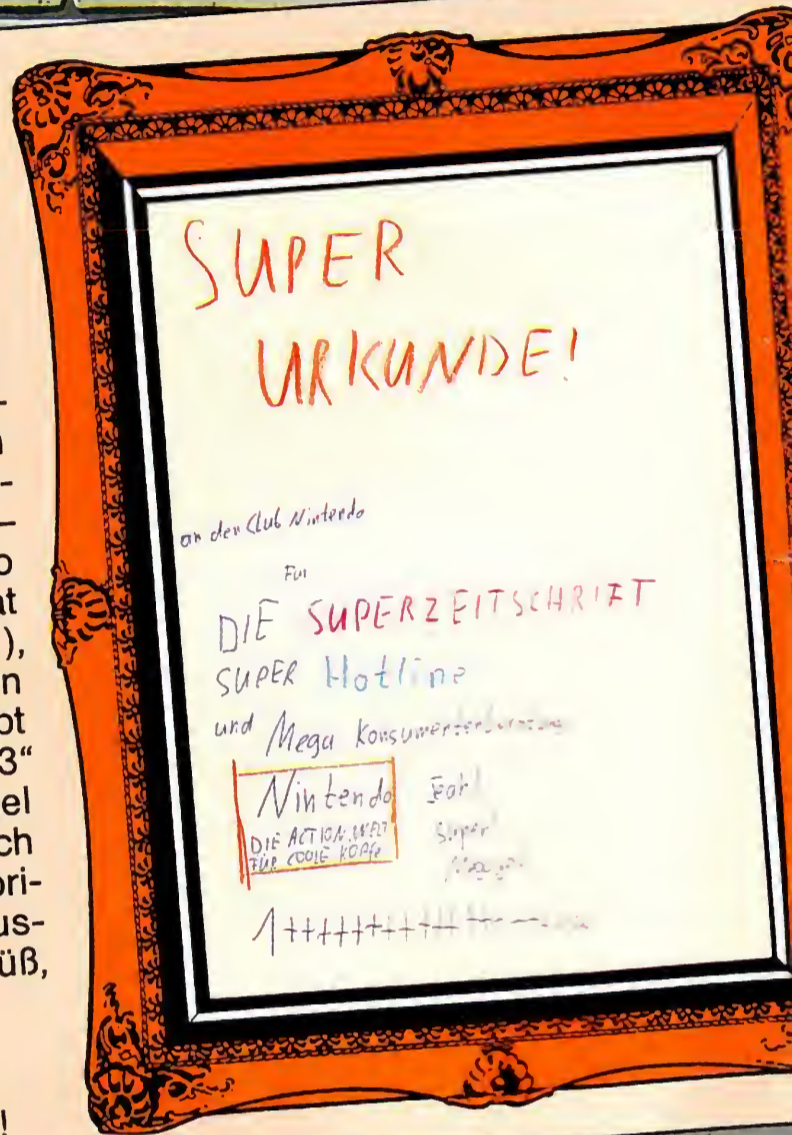 o
at
),
n
ot
3“
el
ch
ori-
us-
üß,
!
SUPER
URKUNDE!
an den Club Nintendo
Für
DIE SUPERZEITSCHRIFT
SUPER Hotline
und Mega
Nintendo
DIE ACTION-WELT
FÜR COOLE KÖPFE
Super
1++++++++++++